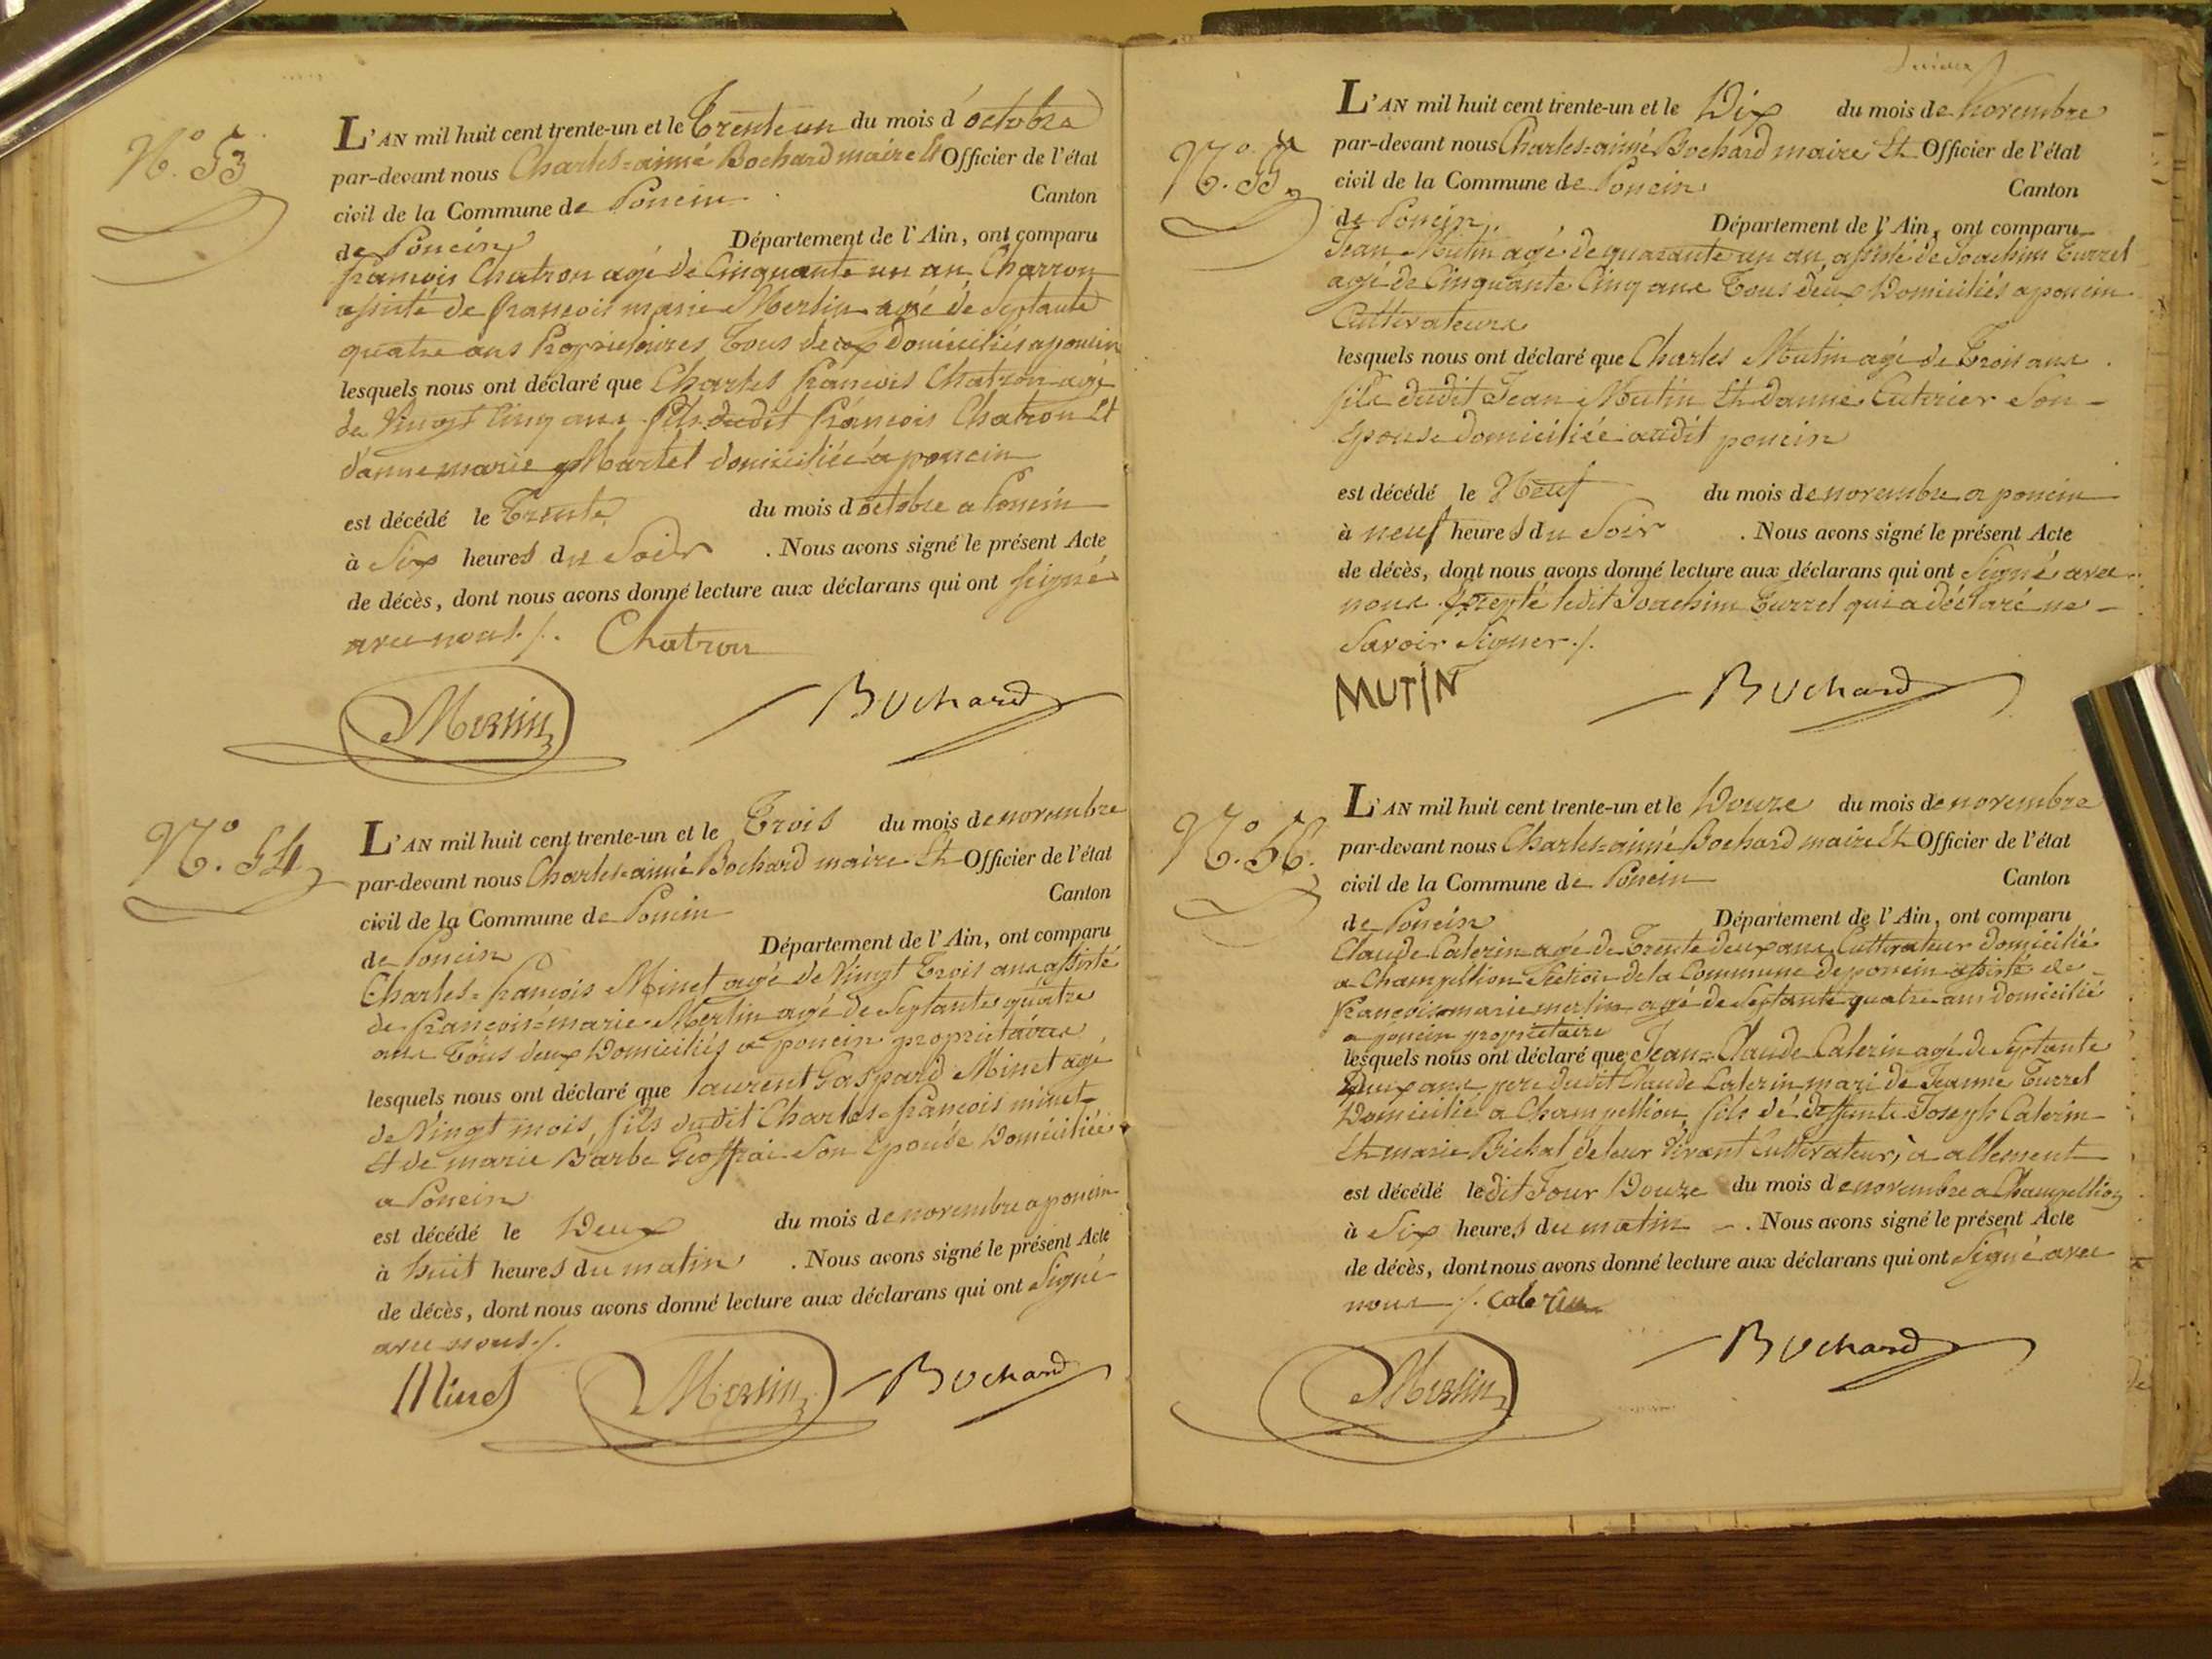 N.o 53
L'AN mil huit cent trente-un et le Trente un du mois d'octobre
par-devant nous Charles=aimé Bochard maire Et Officier de l'état
civil de la Commune de Poncin Canton
de Poncin Département de l'Ain, ont comparu
françois Chatron agé de Cinquante un an Charron
assisté de françois marie Merlin agé de septante
quatre ans Proprietaires Tous deux Domiciliés a poncin
lesquels nous ont déclaré que Charles françois Chatron agé
de Vingt Cinq ans fils dudit françois Chatron Et
d'anne marie Martel domiciliée à poncin
est décédé le Trente du mois d'octobre a Poncin
à Six heures du Soir . Nous avons signé le présent Acte
de décès, dont nous avons donné lecture aux déclarans qui ont signé
avec nous ./. Chatron
Merlin Bochard
N.o 54
L'AN mil huit cent trente-un et le Trois du mois de novembre
par-devant nous Charles=aimé Bochard maire Et Officier de l'état
civil de la Commune de Poncin Canton
de Poncin Département de l'Ain, ont comparu
Charles=françois Minet agé de Vingt Trois ans assisté
de françois=marie Merlin agé de Septante quatre
ans Tous deux Domiciliés a poncin proprietaires
lesquels nous ont déclaré que laurent Gaspard Minet agé
de Vingt mois, fils dudit Charles=françois minet
Et de marie Barbe Geoffrai Son Epouse Domiciliée
a Poncin
est décédé le Deux du mois de novembre a poncin
à huit heures du matin . Nous avons signé le présent Acte
de décès, dont nous avons donné lecture aux déclarans qui ont Signé
avec nous ./.
Minet Merlin Bochard
N.o 55
L'AN mil huit cent trente-un et le Dix du mois de Novembre
par-devant nous Charles=aimé Bochard maire Et Officier de l'état
civil de la Commune de Poncin Canton
de Poncin Département de l'Ain, ont comparu
Jean Mutin agé de quarante un an assisté de Joachim Turrel
agé de Cinquante Cinq ans Tous deux Domiciliés a poncin
Cultivateurs
lesquels nous ont déclaré que Charles Mutin agé de Trois ans
fils dudit Jean Mutin Et danne Cutivier Son
Epouse domiciliée audit poncin
est décédé le Neuf du mois de novembre a poncin
à neuf heures du Soir . Nous avons signé le présent Acte
de décès, dont nous avons donné lecture aux déclarans qui ont Signé avec
nous Excepté ledit Joachim Turrel qui a déclaré ne
Savoir Signer ./.
MUTIN Bochard
N.o 56
L'AN mil huit cent trente-un et le Douze du mois de novembre
par-devant nous Charles=aimé Bochard maire Et Officier de l'état
civil de la Commune de Poncin Canton
de Poncin Département de l'Ain, ont comparu
Claude Caterin agé de Trente deux ans Cultivateur domicilié
a Champellion Section de la Commune de poncin assisté de
françois marie merlin agé de Septante quatre ans domicilié
a poncin proprietaire
lesquels nous ont déclaré que Jean=Claude Caterin agé de Septante
Deux ans pere dudit Claude Caterin mari de Jeanne Turrel
Domicilié a Champellion, fils de deffunts Joseph Caterin
Et marie Bichat de leur Vivant Cultivateur, a allement
est décédé ledit Jour Douze du mois de novembre a Champellion
à Six heures du matin . Nous avons signé le présent Acte
de décès, dont nous avons donné lecture aux déclarans qui ont Signé avec
nous ./. Caterin
Merlin Bochard